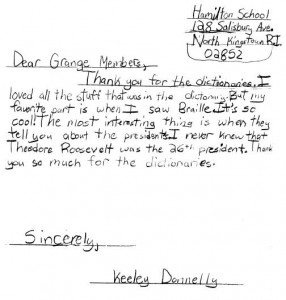 Hamilton School
128 Salisbury Ave.
North Kingstown R.I.
02852
Dear Grange Members,
Thank you for the dictionaries. I
loved all the stuff that was in the dictionary. But my
favorite part is when I saw Braille. It's so
cool! The most interesting thing is when they
tell you about the presidents. I never knew that
Theodore Roosevelt was the 26th president. Thank
you so much for the dictionaries.
Sincerely,
Keeley Donnelly